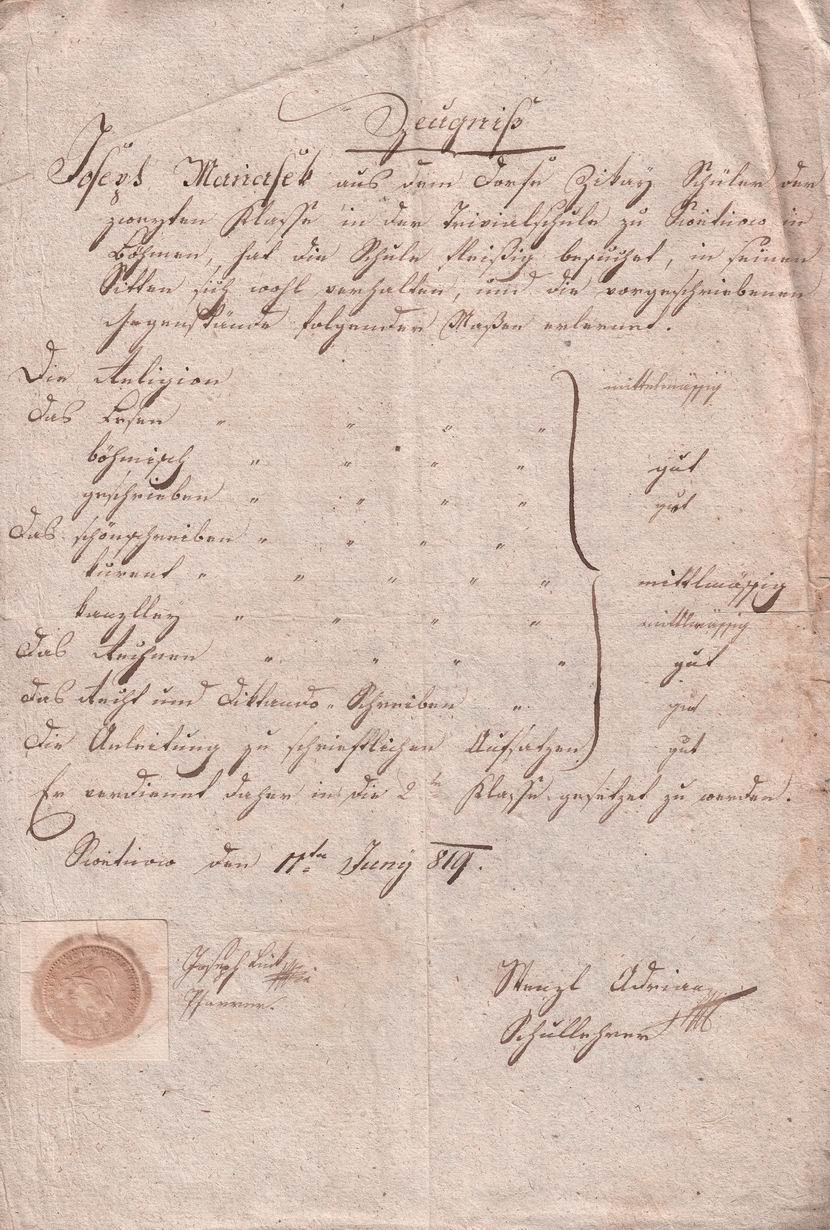 Zeugniß
Joseph Manasek aus dem Dorfe Zikay Schüler der
zweyten Klasse in der Trivialschule zu in
Böhmen, hat die Schule fleißig besuchet, in seinen
Sitten sich wohl verhalten, und die vorgeschriebenen
Gegenstände folgender Maßen erlernet.
Die Religion mittelmässig
Das Lesen " " " "
böhmisch " " " " gut
geschrieben " " " " gut
Das schönschreiben " " " "
kurent " " " " " mittlmässig
kanzlley " " " " mittlmässig
Das Rechnen " " " " gut
Das Recht und Diktando-Schreiben " gut
Die Anleitung zu schriftlichen Aufsätzen gut
Er verdiennt daher in die 2te Klasse gesetzet zu werden.
den 11ten Juny 819.
Joseph
Pfarrer.
Wenzl Adrian
Schullehrer